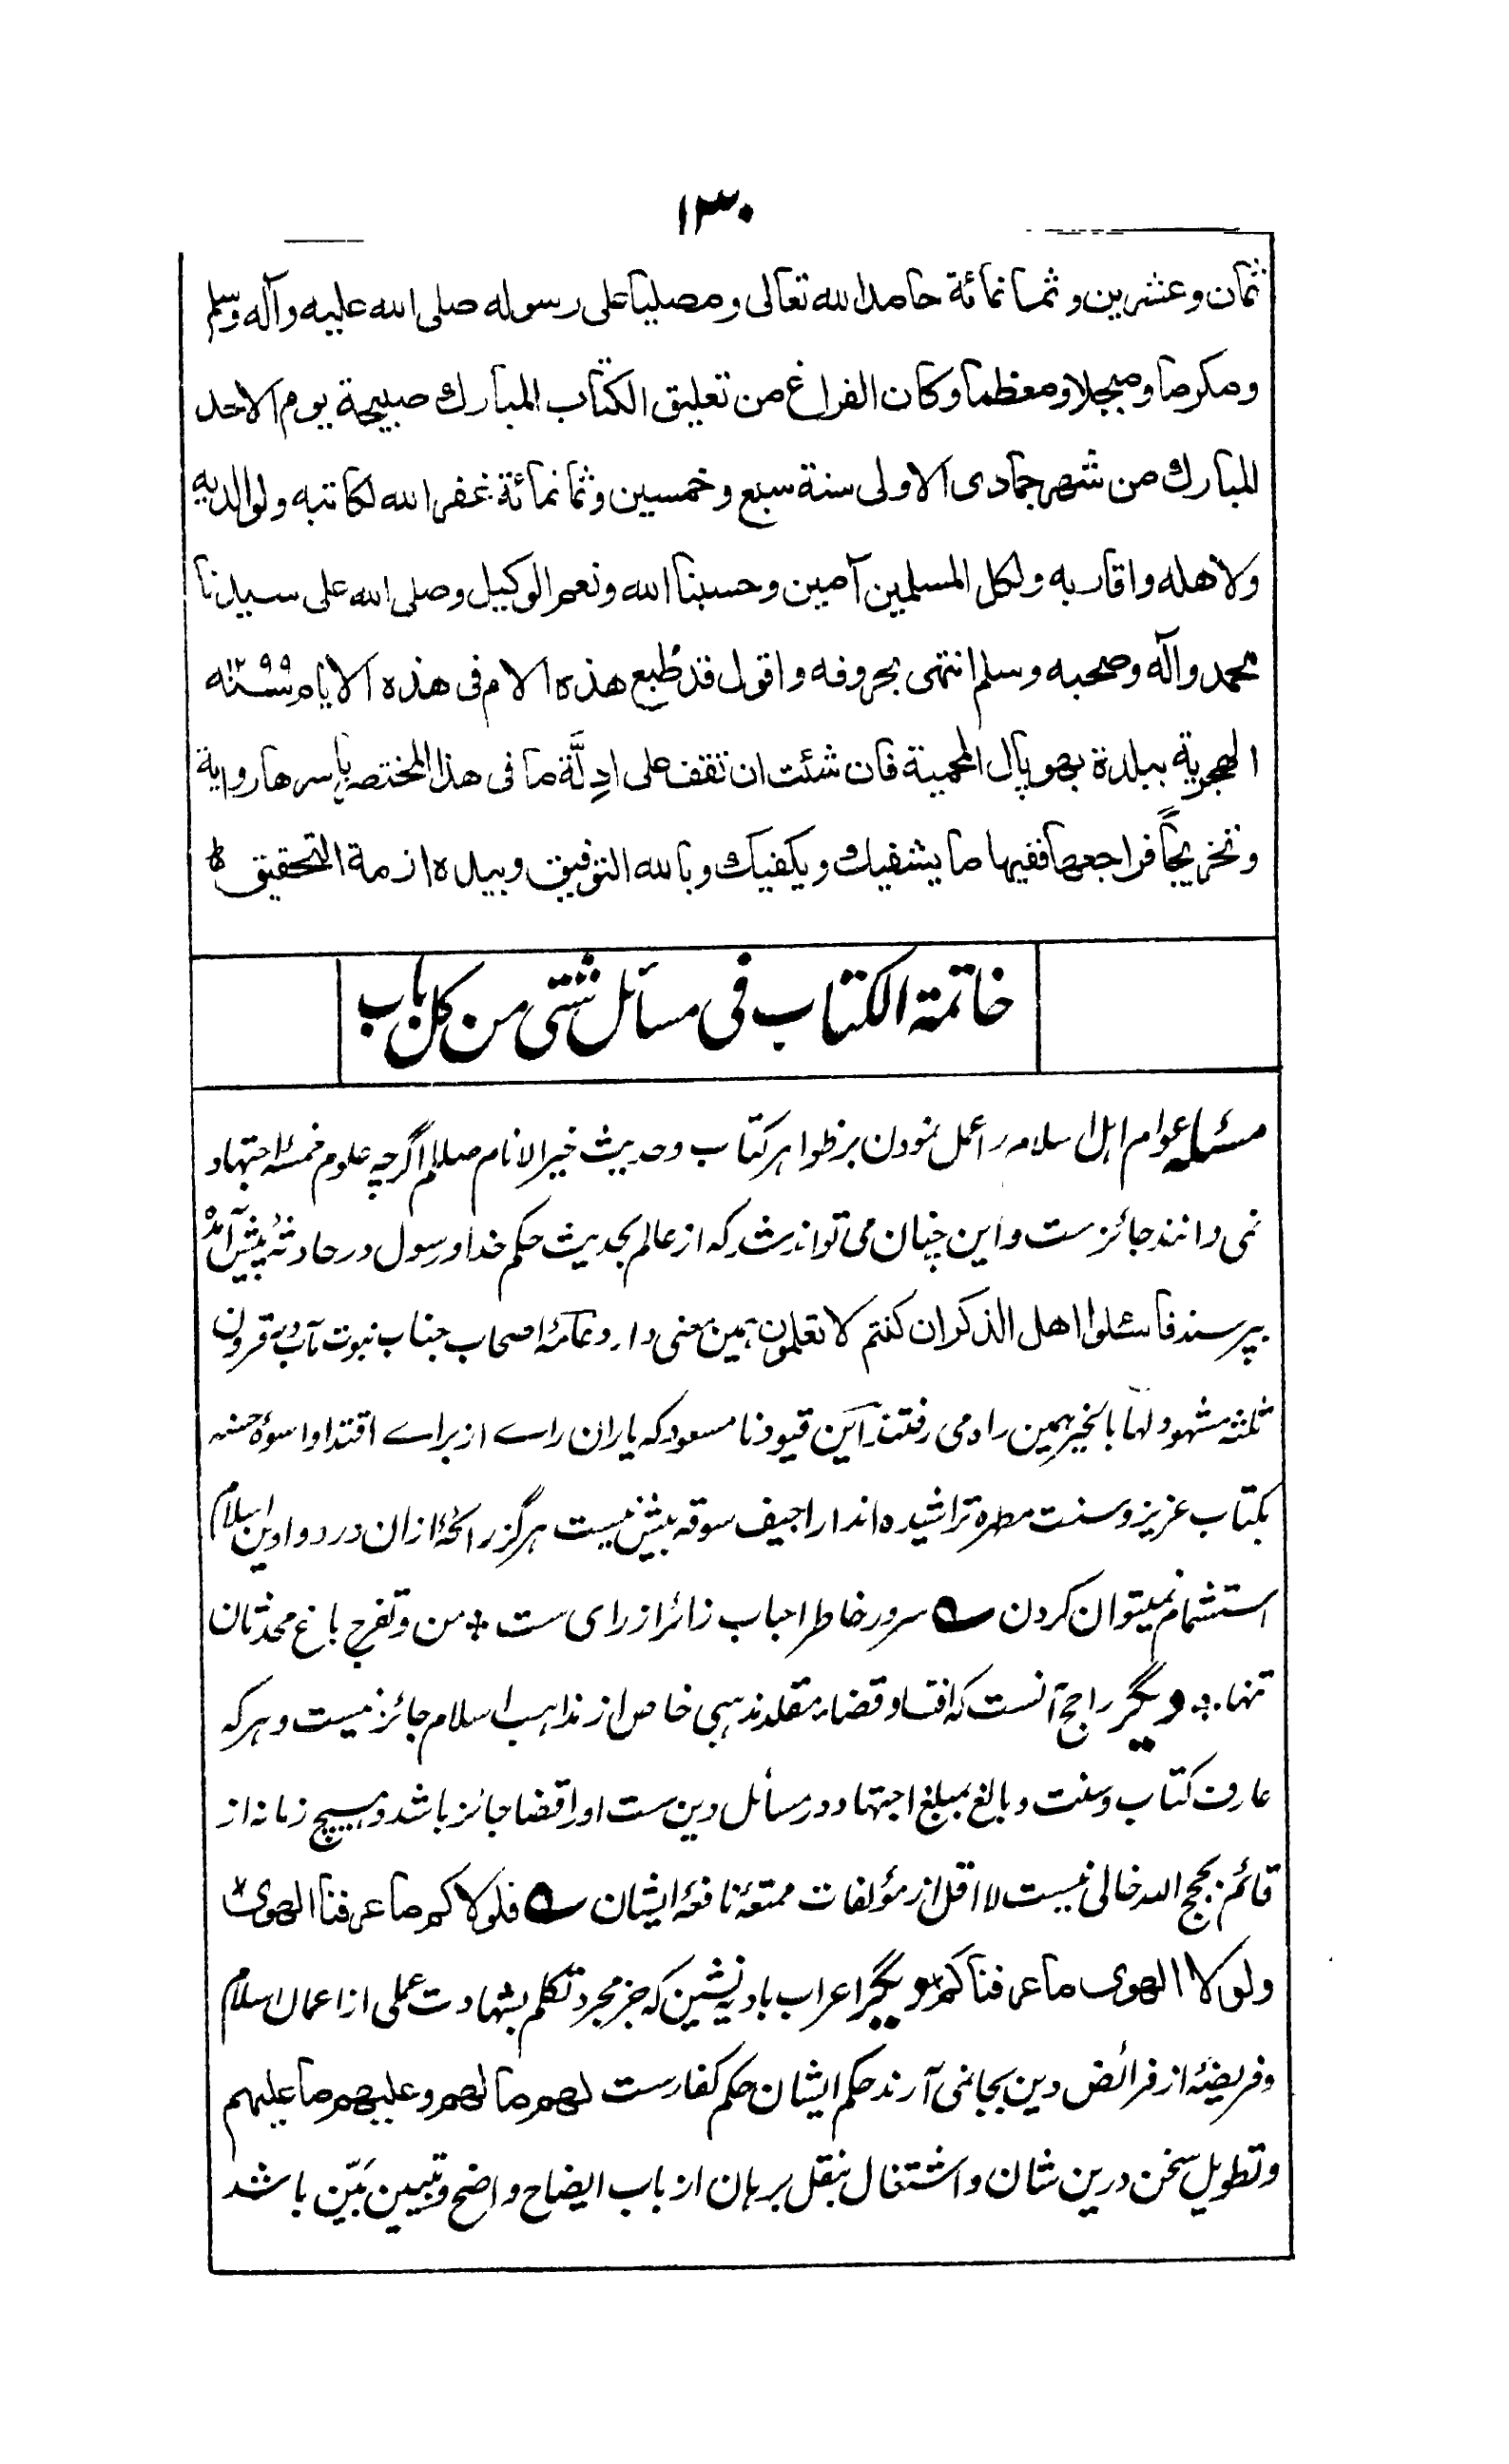 ۱۳۰
ثمان وعشرين وثمانمائة حامدا لله تعالى ومصليا على رسوله صلى الله عليه وآله وسلم
ومكرما ومبجلا ومعظما وكان الفراغ من تعليق الكتاب المبارك صبيحة يوم الاحد
المبارك من شهر جمادى الاولى سنة سبع وخمسين وثمانمائة غفر الله لكاتبه ولوالديه
ولاهله واقاربه ولكل المسلمين آمين وحسبنا الله ونعم الوكيل وصلى الله على سيدنا
محمد وآله وصحبه وسلم انتهى بحروفه واقول قد طُبع هذه الام فى هذه الايام سنه ۱۲۹۹
الهجرية ببلدة بهوپال المحمية فان شئت ان تقف على ادِلَّة ما فى هذا المختصر باسرها رواية
وتخريجاً فراجعها ففيها ما يشفيك ويكفيك وبالله التوفيق وبيده ازمة التحقيق
خاتمة الكتاب فى مسائل شتى من كل باب
مسئله عوام اهل اسلام را عمل نمودن بر ظواهر كتاب وحديث خير الانام صللم اگرچه علوم خمسهٔ اجتهاد
نمى دانند جائز ست واين چنان مى تواند شد كه از عالم بحديث حكم خدا ورسول در حادثهٔ پيش آمده
بپرسند فاسئلوا اهل الذكر ان كنتم لا تعلمون همين معنى دارد وعامهٔ اصحاب جناب نبوت مآب در قرون
ثلثه مشهود لها بالخير همين راه مى رفتند اين قيود نا مسعود كه ياران راے از براے اقتدا واسوهٔ حسنه
بكتاب عزيز وسنت مطهره تراشيده اند اراجيف سوقه بيش نيست هرگز رائحهٔ ازان در دواوين اسلام
استشمام نميتوان كردن ـه سرور خاطر احباب زائر از راى ست ÷ من وتفرج باغ محدثان
تنها ÷ ديگر راجح آنست كه افتا وقضاء مقلد مذهبى خاص از مذاهب اسلام جائز نيست وهر كه
عارف كتاب وسنت وبالغ بمبلغ اجتهاد در مسائل دين ست اورا قضا جائز باشد وهيچ زمانه از
قائم بحجج الله خالى نيست لا اقل از مؤلفات ممتعهٔ نافعهٔ ايشان ـه فلولاكم ما عرفنا الهوى
ولولا الهوى ما عرفناكم ديگر اعراب باديه نشين كه جز مجرد تكلم بشهادت عملى از اعمال اسلام
وفريضهٔ از فرائض دين بجا نمى آرند حكم ايشان حكم كفارست لهم ما لهم وعليهم ما عليهم
وتطويل سخن درين شان واشتغال بنقل برهان از باب ايضاح واضح وتبيين مبيّن باشد